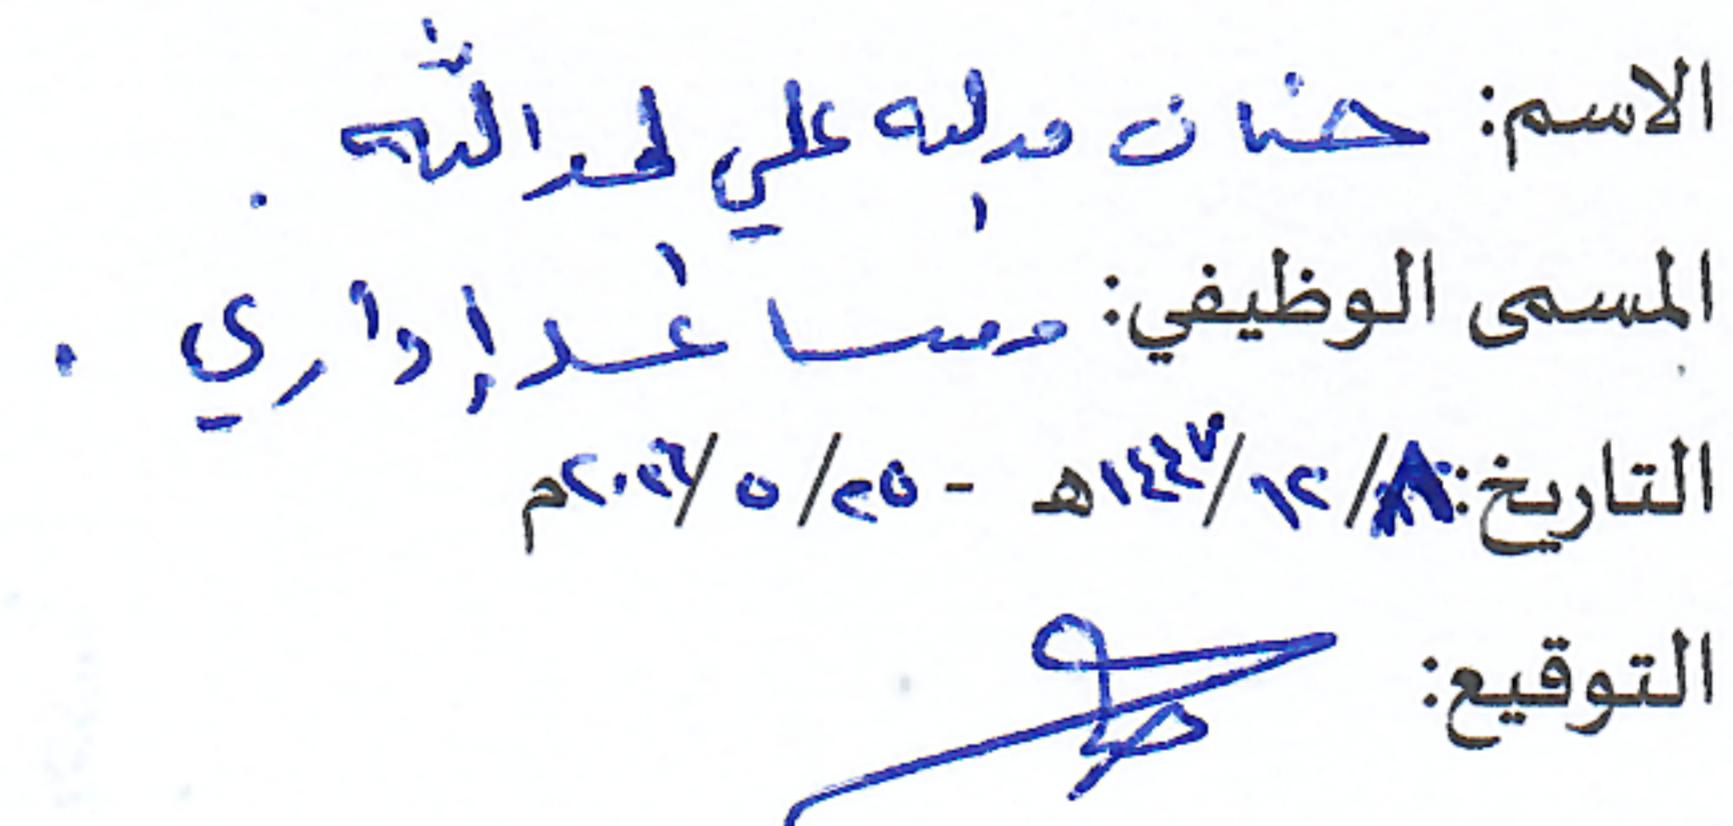 الاسم: حنان علي
المسمى الوظيفي: مساعد إداري .
التاريخ: ٨/ ١٢/ ١٤٤٧هـ - ٢٥/ ٥/ ٢٠٢٦م
التوقيع: